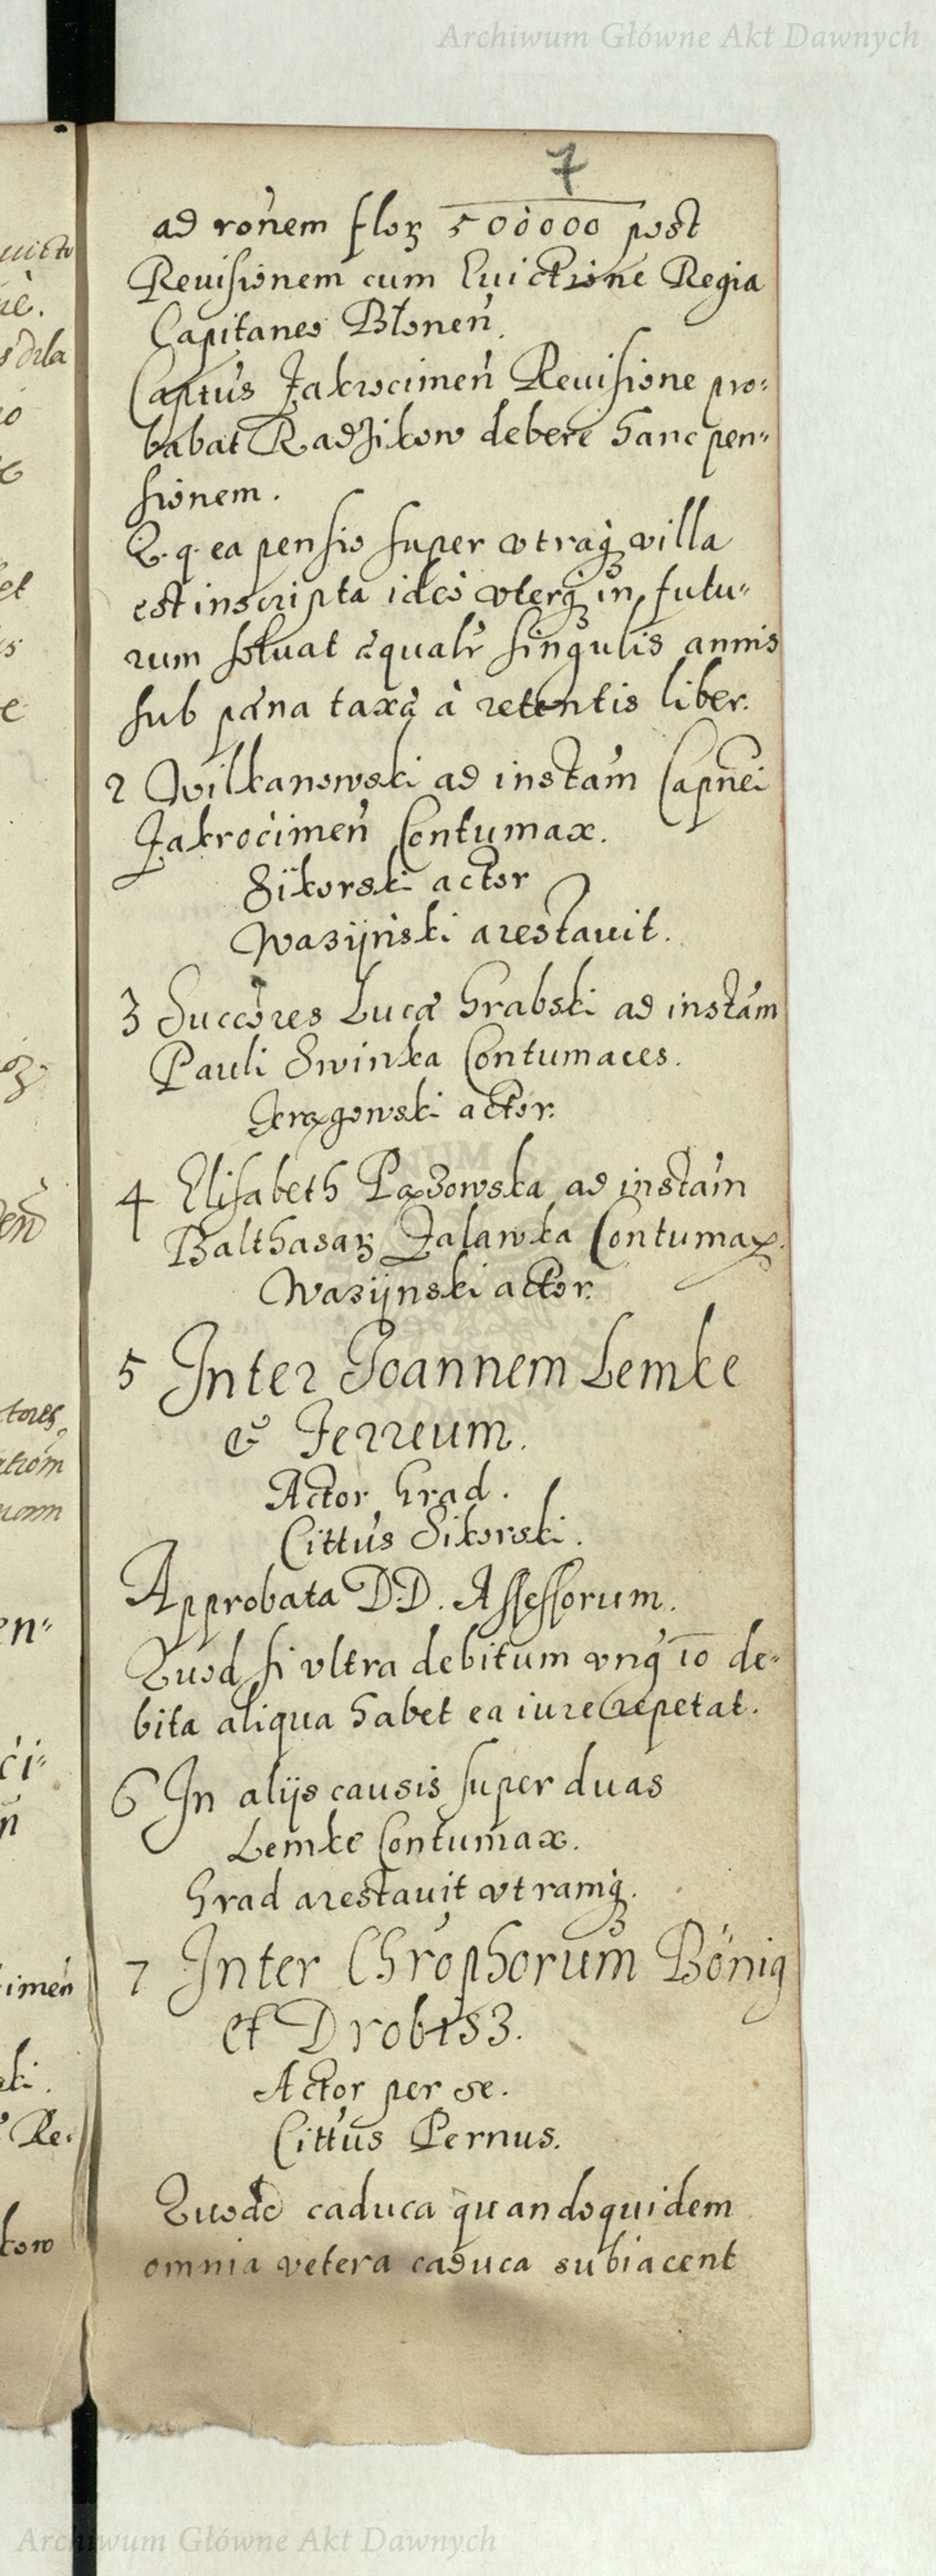 Archiwum Główne Akt Dawnych
7
ad rõnem floꝝ 500000 post
Reuisionem cum Euictione Regia
Capitaneo Błonen̄.
Captus Zakrocimen̄ Reuisione pro:
babat Radzikow debere hanc pen"
sionem.
Q. q. ea pensio super vtraq̢ villa
est inscripta ideo vterq̢ in futu"
rum soluat æqualr̄ singulis annis
sub pæna taxæ à retentis liber.
2 Wilkanowski ad instam̄ Capnei
Zakrocimen̄ Contumax.
Sÿkorski actor
Wazÿnski arestauit.
3 Succōres Lucæ Grabski ad instam̄
Pauli Swinka Contumaces.
actor.
4 Elisabeth ad instam̄
Balthasaꝝ Zalawka Contumax.
Wazijnski actor.
5 Inter Joannem Lemke
& Ferreum.
Actor Grad.
Cittus Sikorski.
Approbata D.D. Assessorum.
Quod si vltra debitum vnq̄ io de-
bita aliqua habet ea iure repetat.
6 In alijs causis super duas
Lemke Contumax.
Grad arestauit vtramq̢.
7 Inter Chrophorum Bönig
et Drobisz.
Actor per se.
Cittus Pernus.
caduca quandoquidem
omnia vetera caduca subiacent
Archiwum Główne Akt Dawnych